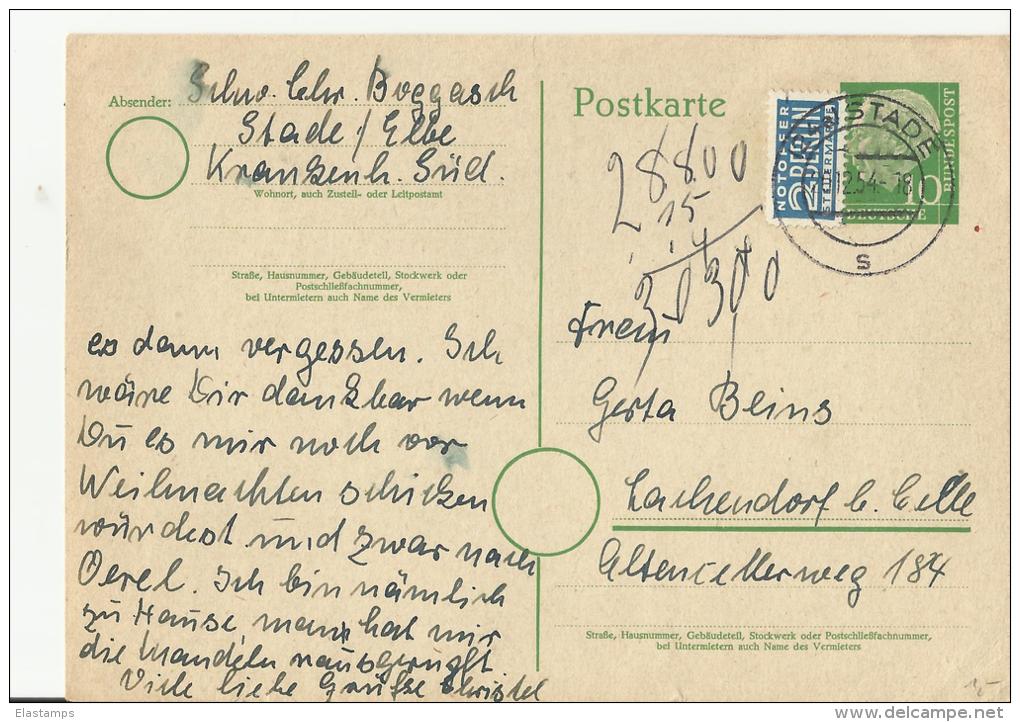 Absender: Schw. Chr. Boggasch
Stade / Elbe
Krankenh. Süd.
Wohnort, auch Zustell- oder Leitpostamt
Straße, Hausnummer, Gebäudeteil, Stockwerk oder
Postschließfachnummer,
bei Untermietern auch Name des Vermieters
es dann vergessen. Ich
wäre Dir dankbar wenn
Du es mir noch vor
Weihnachten schicken
würdest und zwar nach
Oerel. Ich bin nämlich
zu Hause, man hat mir
die Mandeln rausgerupft
Viele liebe Grüße Christel
Postkarte
NOTOPFER
2 BERLIN
STEUERMARKE
STADE
12.54.-18
s
10
DEUTSCHE
BUNDESPOST
28800
15
14
30300
Frau
Gerta Beins
Lachendorf b. Celle
Altencellerweg 184
Straße, Hausnummer, Gebäudeteil, Stockwerk oder Postschließfachnummer,
bei Untermietern auch Name des Vermieters
15
Elastamps
delcampe.net